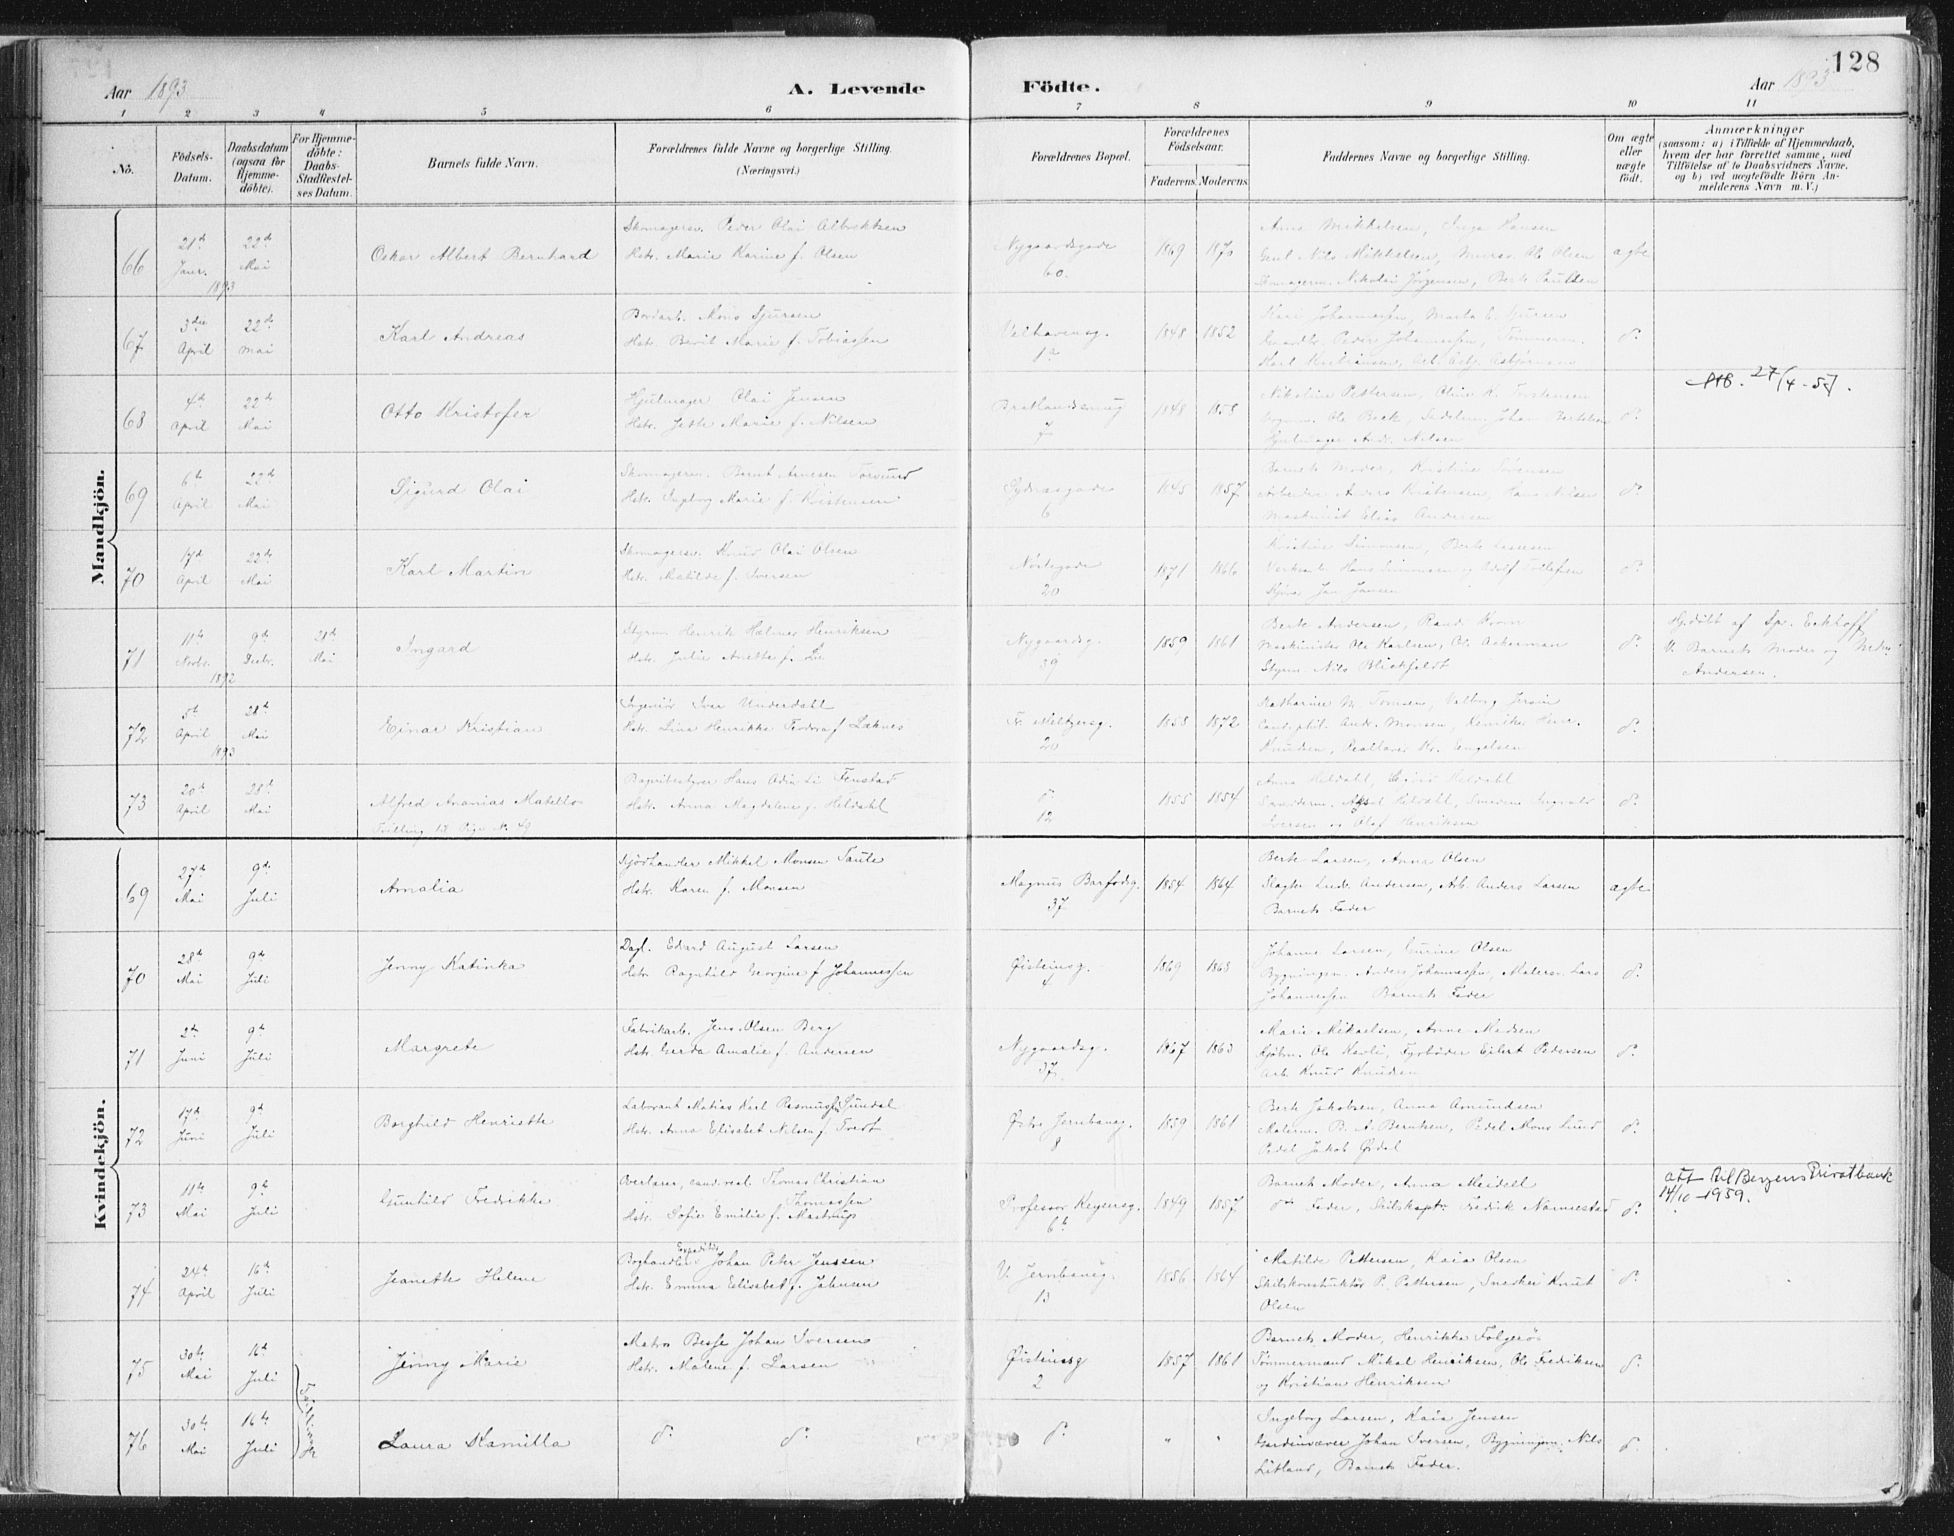 128
Aar 1893
A. Levende
Födte.
Aar 1893
1 2 3 4 5 6 7 8 9 10 11
No.
Födsels-Datum.
Daabsdatum (ogsaa for Hjemmedöbte).
For Hjemmedöbte: Daabs-Stadfæstelses Datum.
Barnets fulde Navn.
Forældrenes fulde Navne og borgerlige Stilling.
(Næringsvei.)
Forældrenes Bopæl.
Forældrenes Födselsaar.
Faderens Moderens
Faddernes Navne og borgerlige Stilling.
Om ægte eller uægte födt.
Anmærkninger
(saasom: a) i Tilfælde af Hjemmedaab,
hvem der har forrettet samme, med
Tilföielse af to Daabsvidners Navne.
og b) ved uægtefödte Börn An-
melderens Navn m. V.)
Mandkjön.
66 21de Janr. 1893 22de Mai Oskar Albert Bernhard
Skomagersv. Peder Olai Albrektsen
Hstr. Marie Karine f. Olsen
Nygaardsgade 60. 1869 1870
Anna Mikkelsen, Inga Hansen
Gent Nils Mikkelsen, Murer Ole Olsen
Nikolai Jörgensen, Berte Paulsen
ægte
67 3die April 22de Mai Karl Andreas
Bordarb. Mons Sjursen
Hstr. Berit Marie f. Tobiassen
Velhavensg. 1a 1848 1852
Kari Johannessen, Marta E. Sjursen
Peder Johannessen, Tömmerm.
Karl Kristiansen
do
68 4de April 22de Mai Otto Kristofer
Hjulmager Olai Jensen
Hstr. Jette Marie f. Nilsen
Bratlandsmug 7 1848 1858
Nikoline Pettersen, Oline K. Torstensen
Ole Beck, Johan Bertelsen
Hjulmager Andr. Nilsen
do
27/4-5
69 6te April 22de Mai Sigurd Olai
Skomagersv. Bernt Arnesen Torvund
Hstr. Ingeborg Marie f. Kristensen
Sydnæsgade 6 1845 1857
Barnets Moder, Kristine Sörensen
Arbeider Anders Kristensen, Hans Nilsen
Maskinist Elias Andersen
do
70 17de April 22de Mai Karl Martin
Skomagersv. Knud Olai Olsen
Hstr. Matilde f. Iversen
Nöstegade 20 1871 1866
Kristine Simonsen, Berte Lassesen
Hans Simonsen og Adolf Tollefsen
Jan Jansen
do
71 11te Novbr. 1892 9de Decbr. 21de Mai Ingard
Styrm. Henrik Holmer Henriksen
Hstr. Julie Anette f. Lie
Nygaardsg. 39 1859 1861
Berte Andersen, Rand Horn
Maskinister Ole Karlsen, Ole Ackerman
Styrm. Nils Blichfeldt
do
Hj.döbt af Spr. Eckhoff
V. Barnets Moder og
Andersen.
72 5te April 1893 28de Mai Einar Kristian
Ingeniör Iver Underdahl
Hstr. Lina Henrikke Teodora f. Laknes
Fr. Meltzersg. 20 1858 1872
Katharine M. Tomsen, Valborg Jersin
Cand. phil. Andr. Monsen, Kemiker Herr.
Knudsen, Reallærer Kr. Engelsen
do
73 20de April 28de Mai Alfred Ananias Matello
Tvilling til Pige No. 49
Bogribestyrer Hans Odin Li Fenstad
Hstr. Anna Magdelene f. Heldahl
do 12 1855 1854
Anna Heldahl, Heldahl
Aksel Heldahl, Smedm. Ingvald
Iversen og Olaf Henriksen
do
Kvindekjön.
69 27de Mai 9de Juli Amalia
Kjödhandler Mikkel Monsen Taule
Hstr. Karen f. Monsen
Magnus Barfodsg. 37 1854 1864
Berte Larsen, Anna Olsen
Slagter Ludv. Andersen, Arb. Anders Larsen
Barnets Fader
ægte
70 28de Mai 9de Juli Jenny Katinka
Dagl. Edvard August Larsen
Hstr. Ragnhild Georgine f. Johannessen
Øisteinsg. 4 1869 1868
Johanne Larsen, Gurine Olsen
Bygningsm. Anders Johannessen, Malersv. Lars
Johannessen Barnets Fader
do
71 2de Juni 9de Juli Margrete
Fabrikarb. Jens Olsen Berg
Hstr. Gerda Amalie f. Andersen
Nygaardsg. 37. 1867 1863
Marie Mikaelsen, Anne Madsen
Kjöbm. Ole Kavli, Fyrböder Eilert Pedersen
Arb. Knud Knudsen
do
72 17de Juni 9de Juli Borghild Henriette
Laborant Matias Karl Rasmussen Sundal
Hstr. Anna Elisabet Nilsen f. Tvedt
Østre Jernbaneg. 8 1859 1861
Berte Jakobsen, Anna Amundsen
Malerm. B. A. Berntsen, Pedel Mons Lund
Pedel Jakob Ördal
do
73 11te Mai 9de Juli Gunhild Fredrikke
Overlærer, cand. real. Thomas Christian
Thomassen
Hstr. Sofie Emilie f. Mastrup
Professor Keysersg. 6b 1849 1857
Barnets Moder, Anna Meidell
do Fader, Skibskaptn. Fredrik Nannestad
do
att til Bergens Privatbank
14/10-1959.
74 24de April 16de Juli Jeanette Helene
Boghandler Expeditör Johan Peter Jenssen
Hstr. Emma Elisabet f. Jahnsen
V. Jernbaneg. 13 1856 1864
Matilde Pettersen, Kaia Olsen
Skibskonstruktör P. Pettersen, Snedker Knut
Olsen
do
75 30te Mai 16de Juli Jenny Marie
Matros Besse Johan Iversen
Hstr. Malene f. Larsen
Øisteinsg 2 1857 1861
Barnets Moder, Henrikke Folgerö
Tömmermand Mikal Henriksen, Ole Fredriksen
og Kristian Henriksen
do
Tvillinger
76 30te Mai 16de Juli Laura Kamilla
do do do " "
Ingeborg Larsen, Kaia Jensen
Gardinvæver Johan Iversen, Bygningsm. Nils
Litland, Barnets Fader.
do